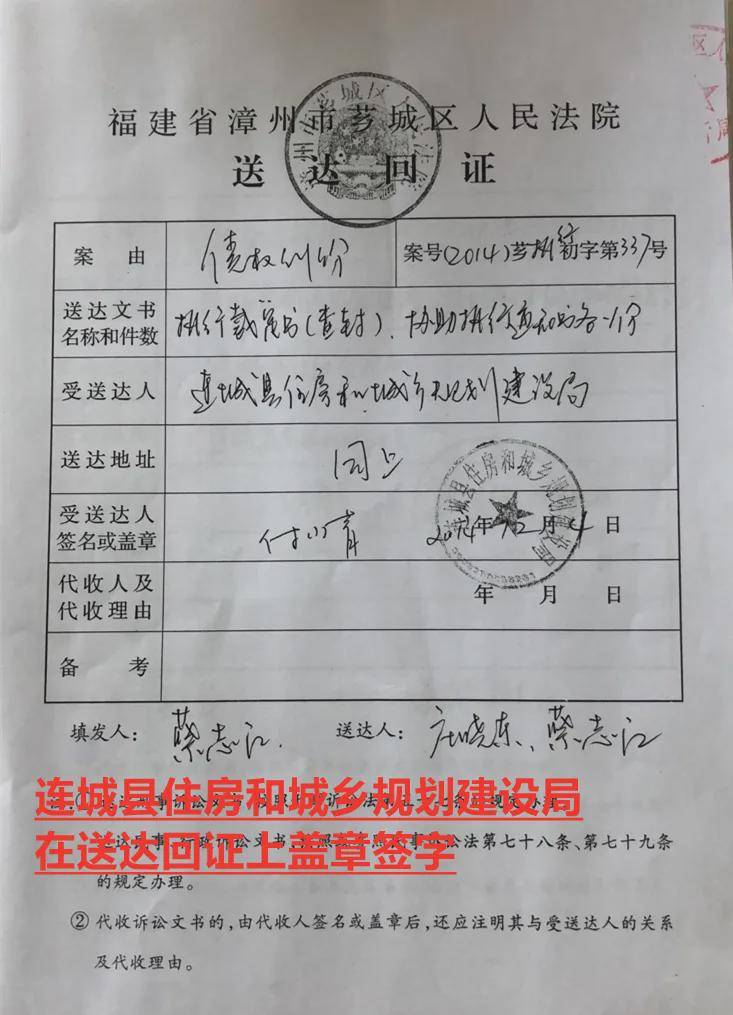 福建省漳州市芗城区人民法院
送达回证
案由 债权纠纷 案号(2014)芗执行初字第337号
送达文书名称和件数 执行裁定书(查封)、协助执行通知书各一份
受送达人 连城县住房和城乡规划建设局
送达地址 同上
受送达人签名或盖章 付小青 2014年12月4日
连城县住房和城乡规划建设局
代收人及代收理由 年 月 日
备考
填发人: 蔡志江. 送达人: 庄晓东、蔡志江
连城县住房和城乡规划建设局
在送达回证上盖章签字
诉讼法第七十八条、第七十九条
的规定办理。
② 代收诉讼文书的,由代收人签名或盖章后,还应注明其与受送达人的关系
及代收理由。